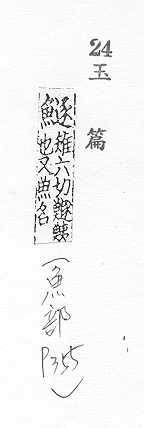 24
玉篇
鱁 雉六切鱁鮧
也又魚名
(魚部 P355)